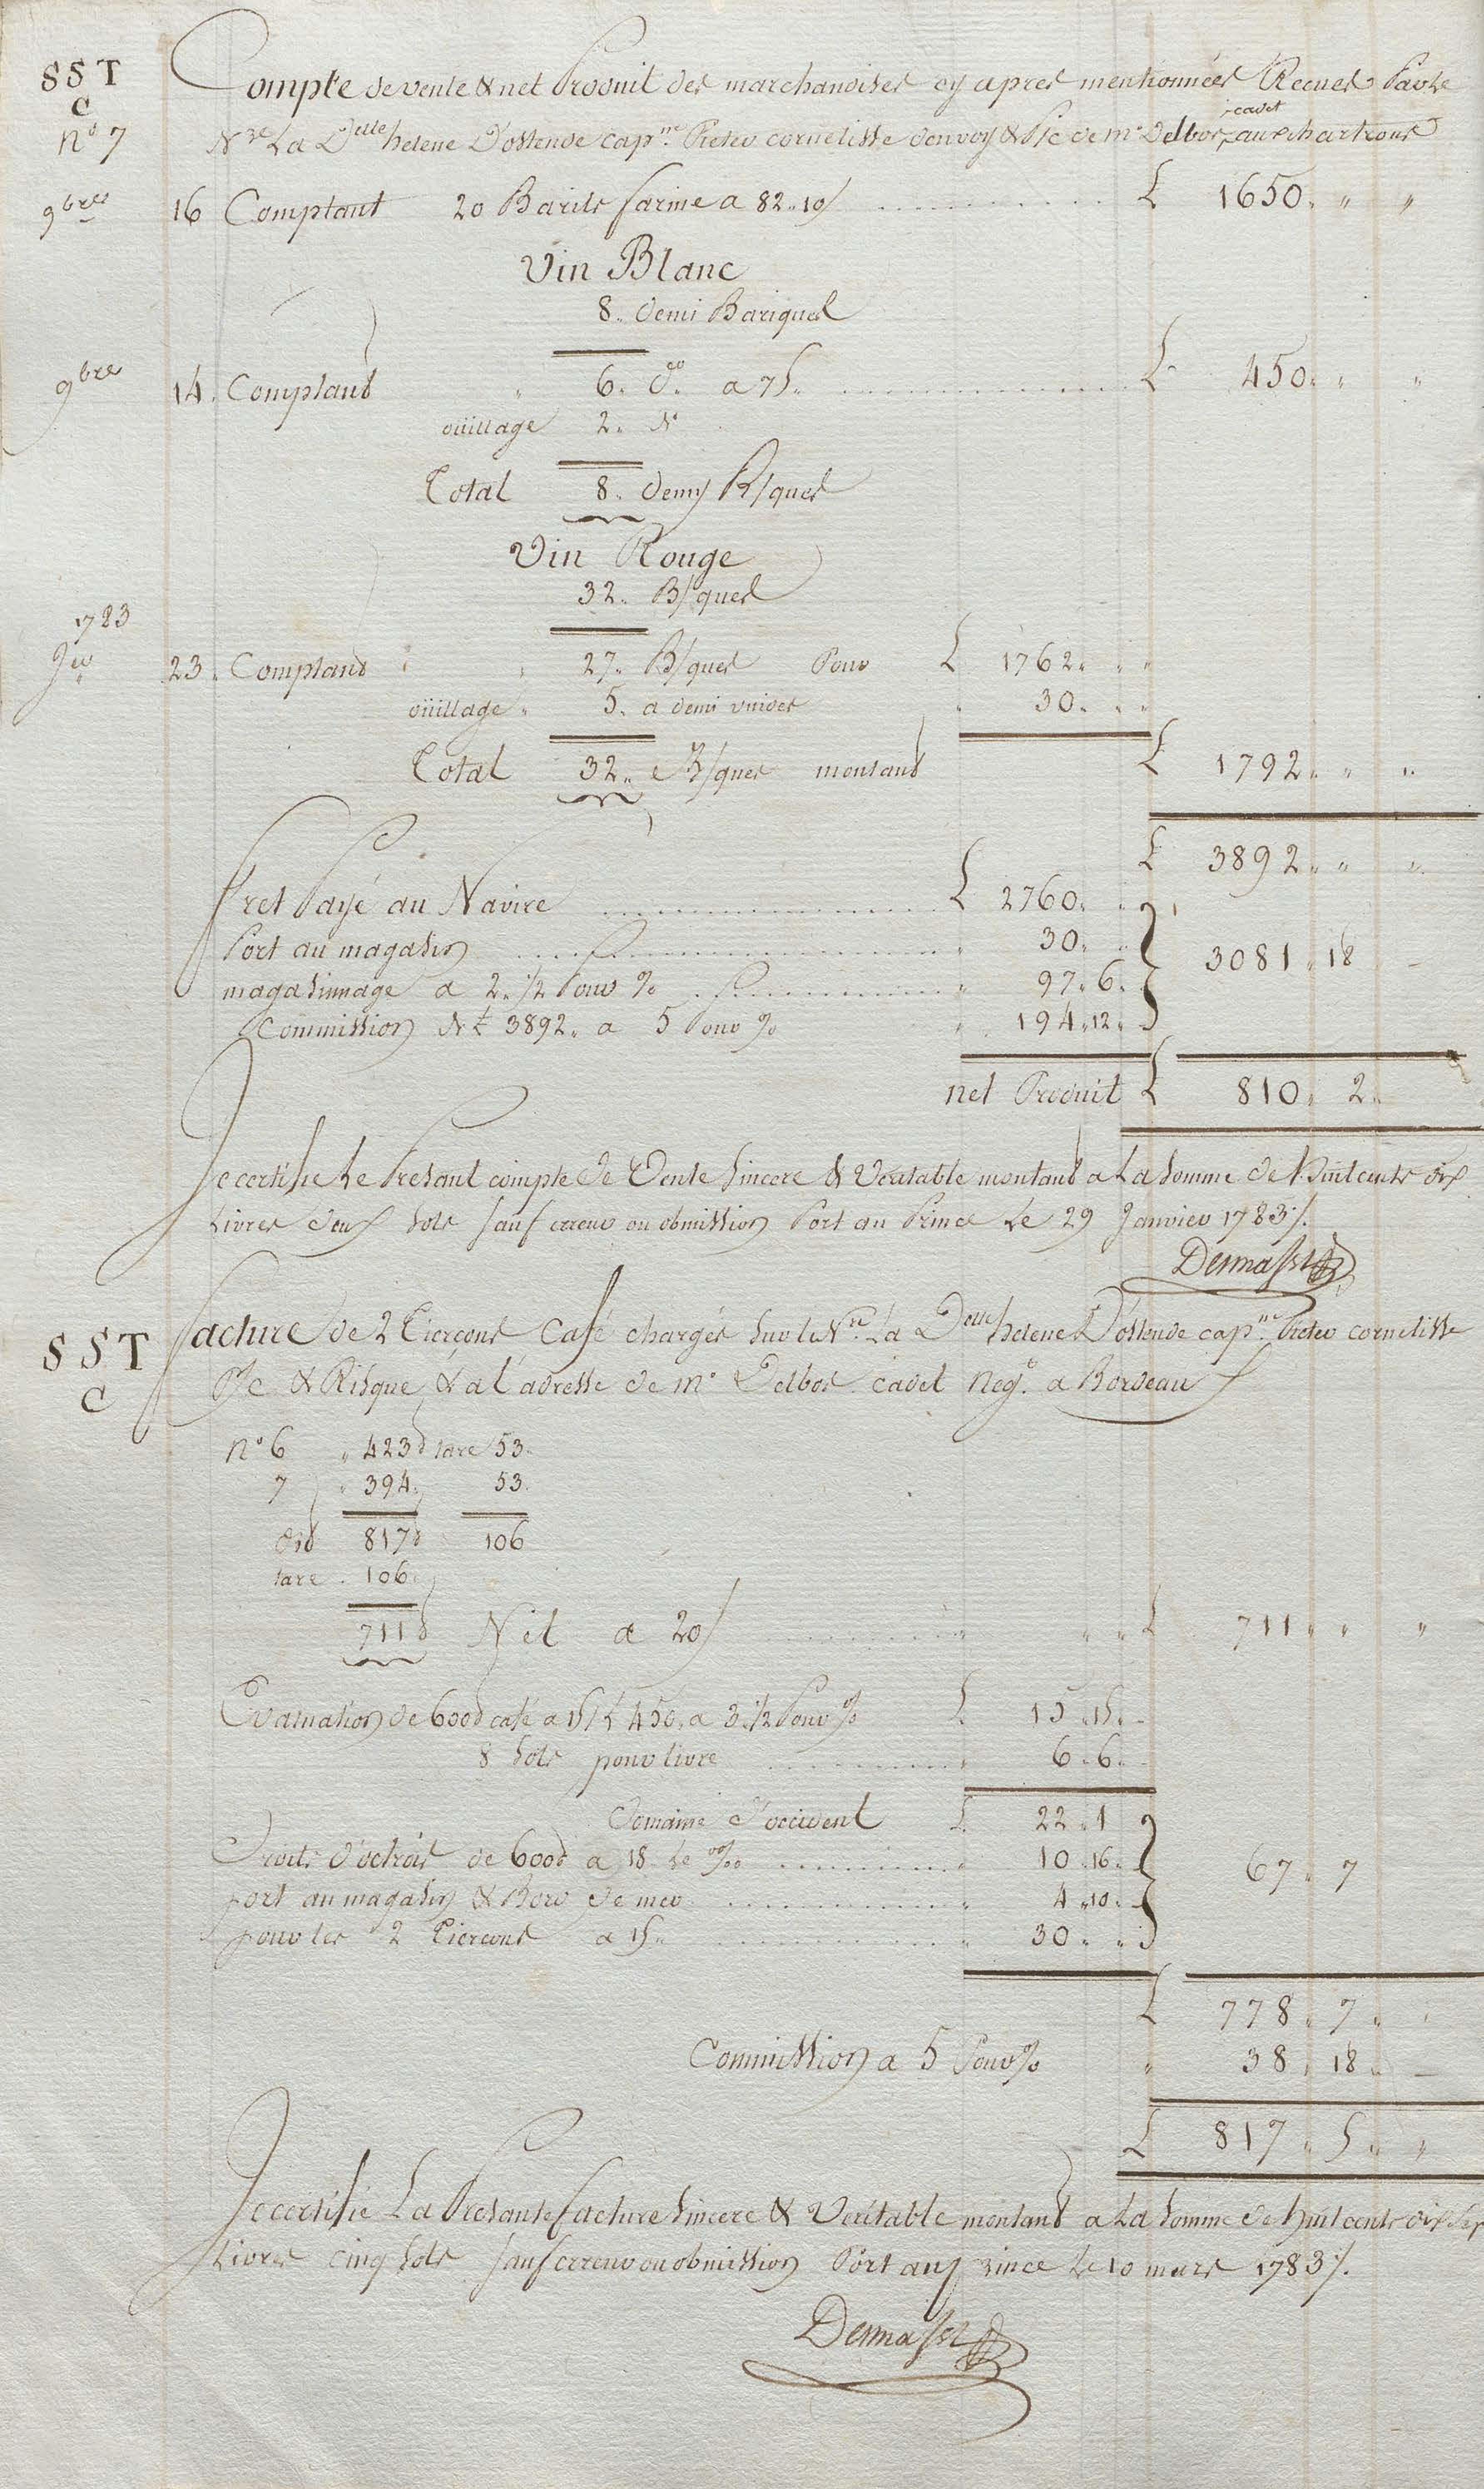 SST
C
n° 7
Compte de vente & net Produit des marchandises cy apres mentionnées Recues Par le
Nre La Delle helene D'ostende capne Pieter cornelisse d'envoy & P/c de mr Delbos cadet aux chartrons
9bre 16 Comptant 20 Barils farine a 82.10/ £ 1650 " "
Vin Blanc
8. demi Bariques
9bre 14. Comptant " 6. do. a 75. £ 450. " "
oüillage 2. N°
Total 8. demy B/ques
Vin Rouge
32. B/ques
1783
Jer 23. Comptant " 27. B/ques Pour £ 1762. " "
oüillage " 5. a demi vuides " 30. " "
Total 32. B/ques montant £ 1792 " "
£ 3892 " "
fret Payé au Navire £ 2760. "
Port au magasin " 30. " 3081 . 18
magasinnage a 2. 1/2 Pour % " 97. 6.
Commission Sr £ 3892. a 5 Pour % " 194. 12.
net Produit £ 810. 2.
Je certifie Le Presant compte de Vente Sincere & Veritable montant a La Somme de huit cents dix
Livres deux Sols Sauf erreur ou obmission Port au Prince Le 29 Janvier 1783 ./.
Demasst
SST
C
facture de 2 Tierçons Café chargés Sur le Nre La Delle helene D'ostende capne Pieter cornelisse
P/c & Risque & a L'adresse de mr Delbos cadet neg. a Bordeau
n° 6 " 423 tare 53.
7 " 394. 53.
Ord 817 106
tare . 106
711 Net a 20/ " " " £ 711 " "
Evaluation de 600 café a 15/ £ 450. a 3. 1/2 Pour % £ 15. 15.
8 Sols pour livre " 6. 6.
Domaine d'occident £ 22. 1
Droits d'octrois de 600 a 18 Le ‰ " 10. 16. 67. 7
port au magasin & Bord de mer " 4. 10.
pour les 2 Tierçons a 15. " 30. "
£ 778. 7.
Commission a 5 Pour % " 38. 18.
£ 817. 5. "
Je certifié La Presante facture Sincere & Veritable montant a La Somme de huit cents dix Sept
Livres cinq Sols Sauf erreur ou obmission Port au Prince Le 10 mars 1783 ./.
Demasst